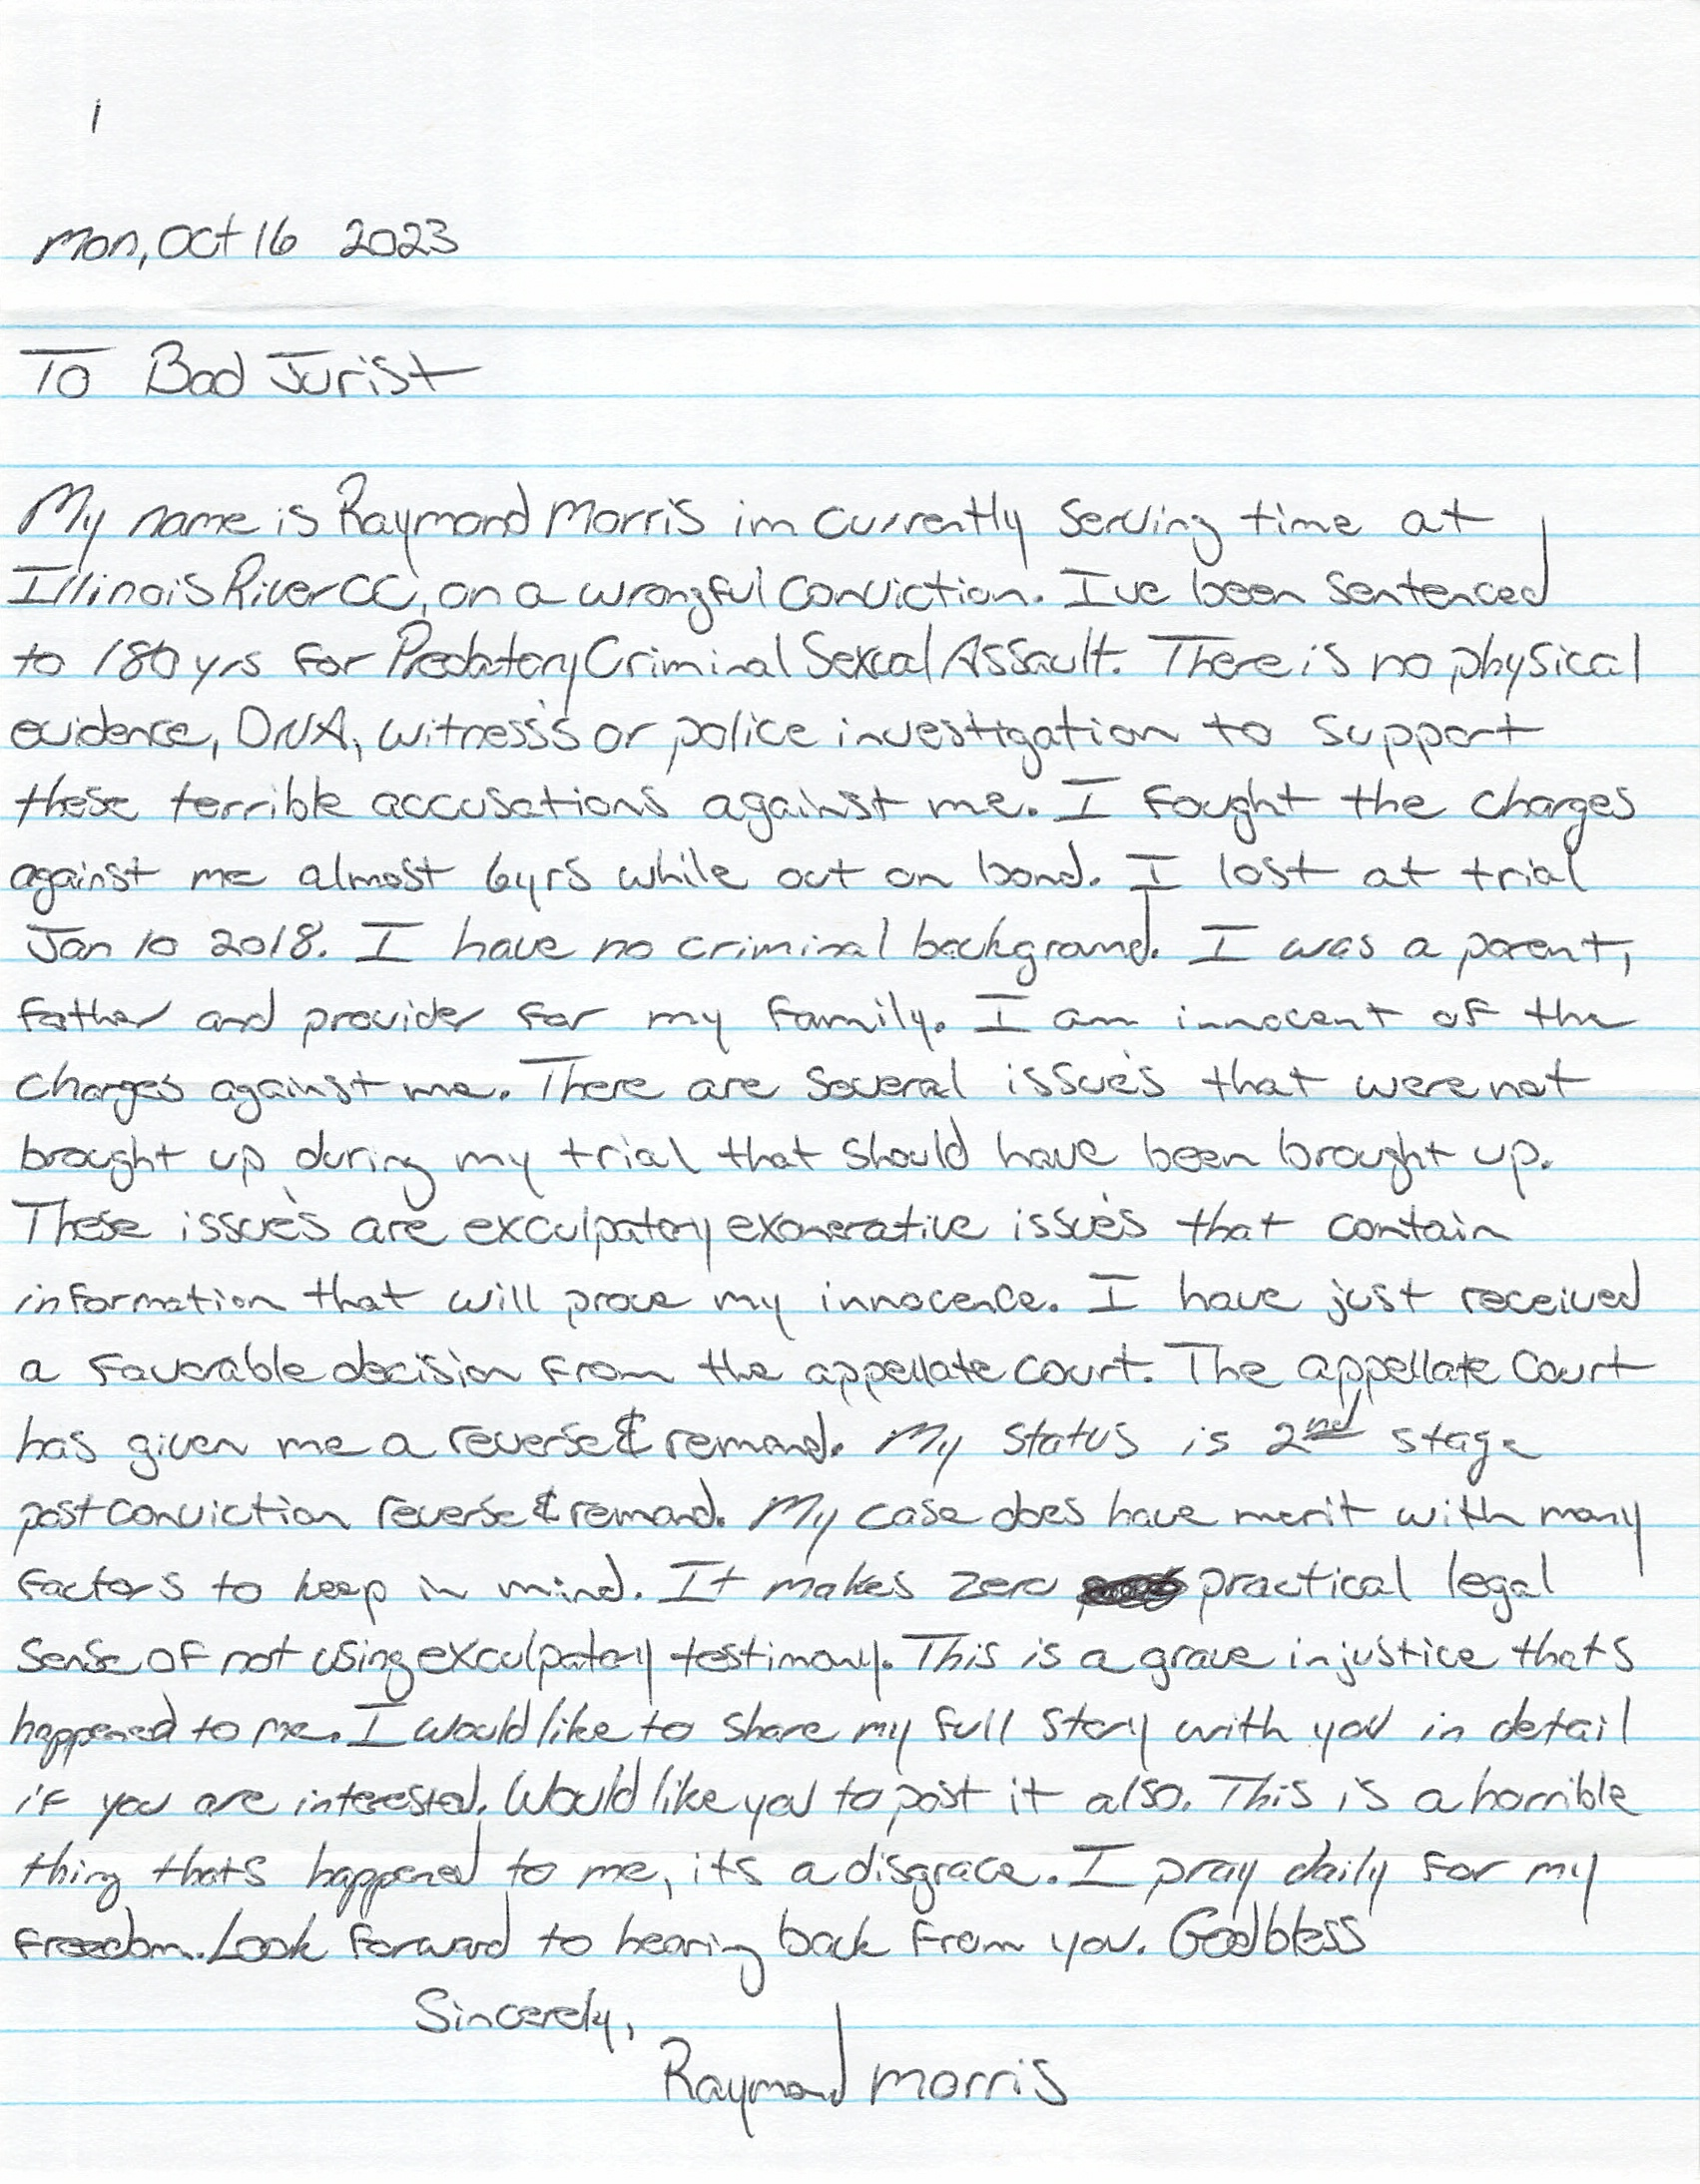 1
Mon, Oct 16 2023
To Bad Jurist
My name is Raymond Morris im currently serving time at
Illinois River CC, on a wrongful conviction. I've been sentenced
to 180 yrs for Predatory Criminal Sexual Assault. There is no physical
evidence, DNA, witness's or police investigation to support
these terrible accusations against me. I fought the charges
against me almost 6yrs while out on bond. I lost at trial
Jan 10 2018. I have no criminal background. I was a parent,
father and provider for my family. I am innocent of the
charges against me. There are several issue's that were not
brought up during my trial that should have been brought up.
These issue's are exculpatory exonerative issue's that contain
information that will prove my innocence. I have just received
a favorable decision from the appellate court. The appellate court
has given me a reverse & remand. My status is 2nd stage
post conviction reverse & remand. My case does have merit with many
factors to keep in mind. It makes zero practical legal
sense of not using exculpatory testimony. This is a grave injustice thats
happened to me. I would like to share my full story with you in detail
if you are interested. Would like you to post it also. This is a horrible
thing thats happened to me, its a disgrace. I pray daily for my
freedom. Look forward to hearing back from you. Godbless
Sincerely,
Raymond Morris